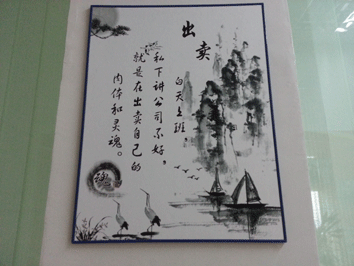 出卖
白天上班，
私下讲公司不好，
就是在出卖自己的
肉体和灵魂。